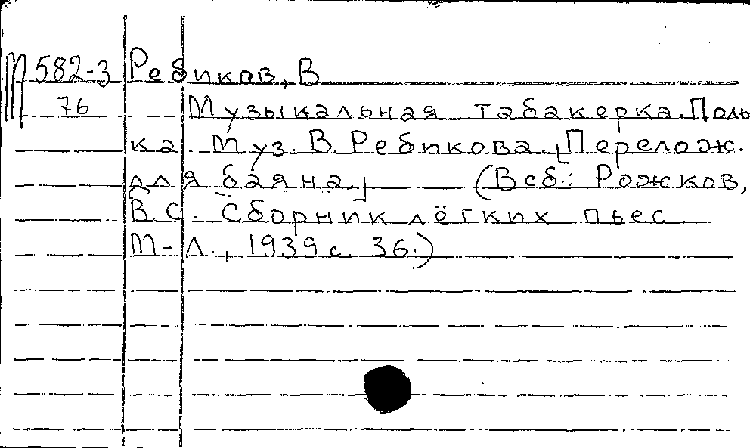 М 582-3 Ребиков, В
76 Музыкальная табакерка. Поль
ка. Муз. В. Ребикова. [Перелож.
для баяна.] (В сб.: Рожков,
В.С. Сборник лёгких пьес
М-Л., 1939 с. 36.)